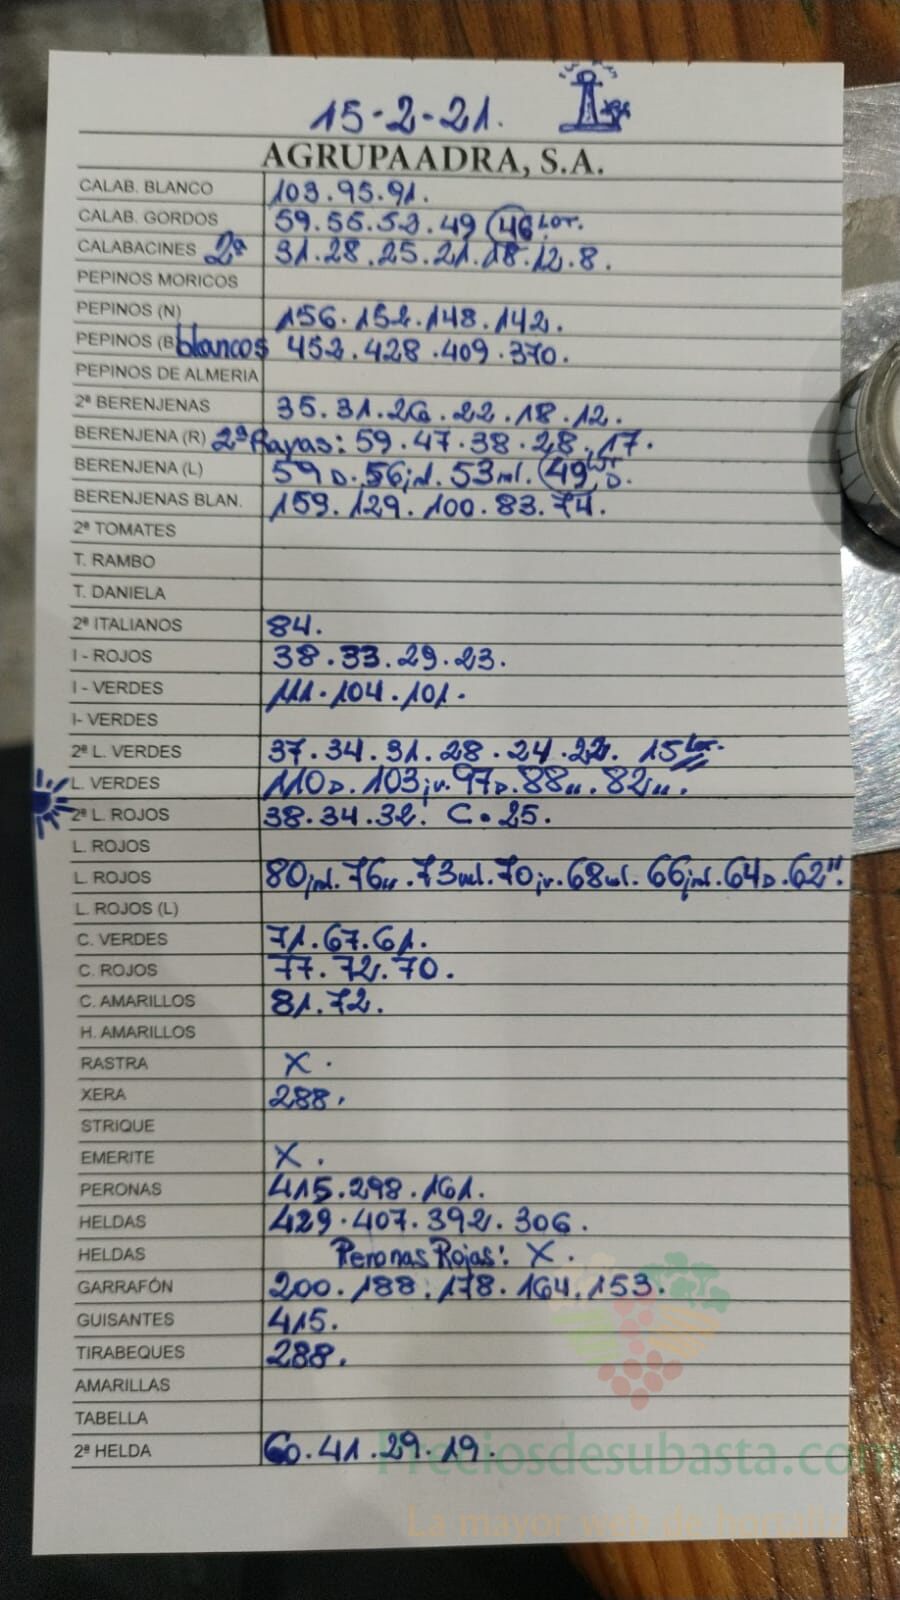 15-2-21.
AGRUPAADRA, S.A.
CALAB. BLANCO 103.95.91.
CALAB. GORDOS 59.55.52.49 46 Lor.
CALABACINES 2ª 31.28.25.21.18.12.8.
PEPINOS MORICOS
PEPINOS (N) 156.152.148.142.
PEPINOS (B blancos 452.428.409.370.
PEPINOS DE ALMERIA
2ª BERENJENAS 35.31.26.22.18.12.
BERENJENA (R) 2ª Rayas: 59.47.38.28.17.
BERENJENA (L) 59 D. 56 jnl. 53 ml. 49 D.
BERENJENAS BLAN. 159.129.100.83.74.
2ª TOMATES
T. RAMBO
T. DANIELA
2ª ITALIANOS 84.
I - ROJOS 38.33.29.23.
I - VERDES 111.104.101.
I- VERDES
2ª L. VERDES 37.34.31.28.24.22. 15 Lor.
L. VERDES 110 D. 103 jv. 97 D. 88 ". 82 ".
2ª L. ROJOS 38.34.32. C.25.
L. ROJOS
L. ROJOS 80 jnl. 76 ". 73 ml. 70 jv. 68 ml. 66 jnl. 64 D. 62 ".
L. ROJOS (L)
C. VERDES 71.67.61.
C. ROJOS 77.72.70.
C. AMARILLOS 81.72.
H. AMARILLOS
RASTRA X.
XERA 288.
STRIQUE
EMERITE X.
PERONAS 415.298.161.
HELDAS 429.407.392.306.
HELDAS Peronas Rojas: X.
GARRAFÓN 200.188.178.164.153.
GUISANTES 415.
TIRABEQUES 288.
AMARILLAS
TABELLA
2ª HELDA 60.41.29.19.
Preciosdesubasta.com
La mayor web de hortaliz